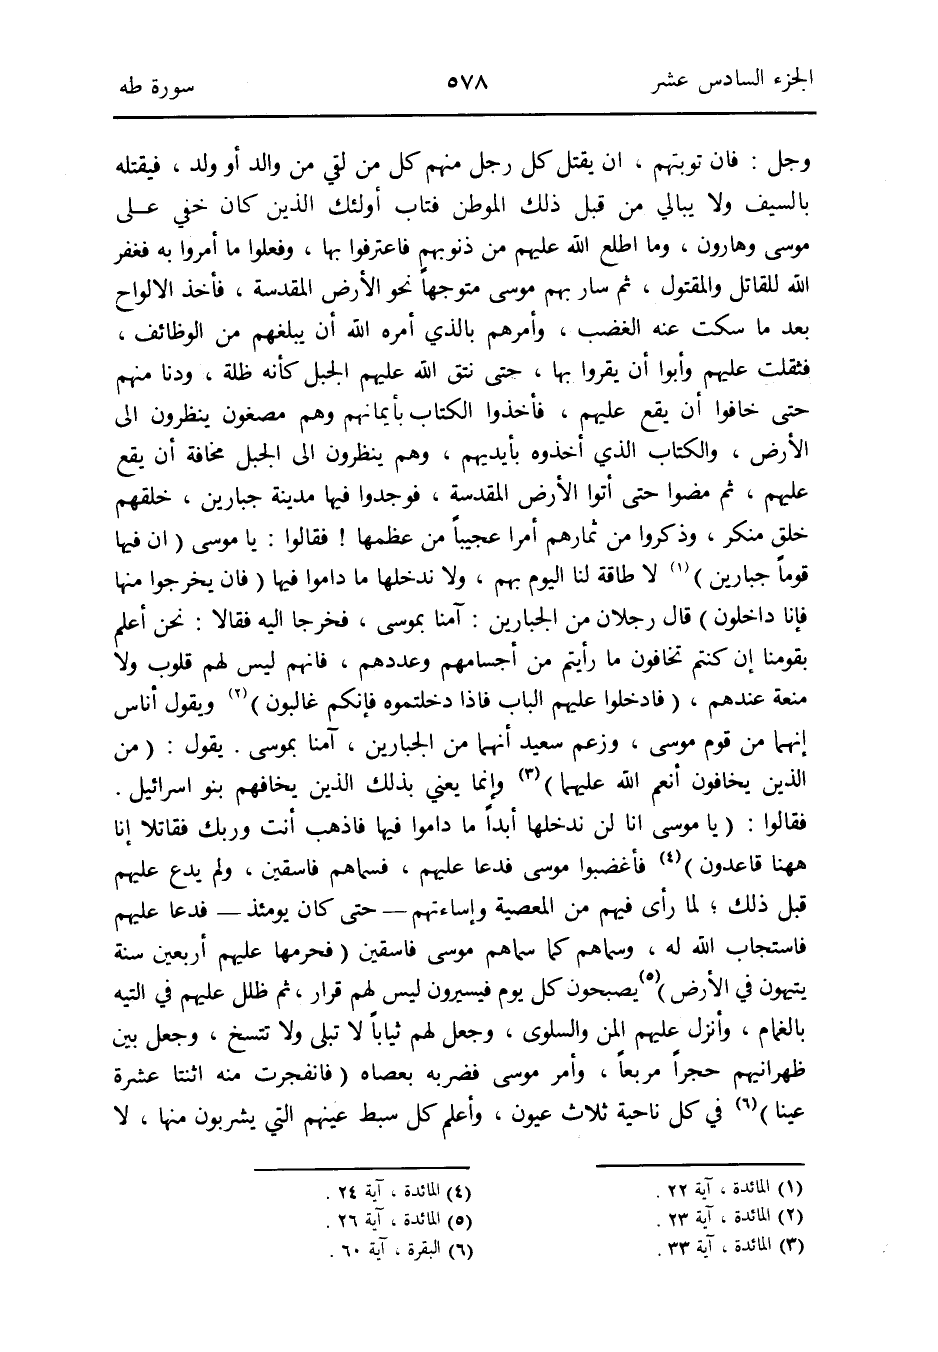 الجزء السادس عشر ٥٧٨ سورة طه
وجل : فان توبتهم ، ان يقتل كل رجل منهم كل من لقي من والد أو ولد ، فيقتله
بالسيف ولا يبالي من قبل ذلك الموطن فتاب أولئك الذين كان خفي على
موسى وهارون ، وما اطلع الله عليهم من ذنوبهم فاعترفوا بها ، وفعلوا ما أمروا به فغفر
الله للقاتل والمقتول ، ثم سار بهم موسى متوجهاً نحو الأرض المقدسة ، فأخذ الالواح
بعد ما سكت عنه الغضب ، وأمرهم بالذي أمره الله أن يبلغهم من الوظائف ،
فثقلت عليهم وأبوا أن يقروا بها ، حتى نتق الله عليهم الجبل كأنه ظلة ، ودنا منهم
حتى خافوا أن يقع عليهم ، فأخذوا الكتاب بأيمانهم وهم مصغون ينظرون الى
الأرض ، والكتاب الذي أخذوه بأيديهم ، وهم ينظرون الى الجبل مخافة أن يقع
عليهم ، ثم مضوا حتى أتوا الأرض المقدسة ، فوجدوا فيها مدينة جبارين ، خلقهم
خلق منكر ، وذكروا من ثمارهم أمرا عجيباً من عظمها ! فقالوا : يا موسى ( ان فيها
قوماً جبارين )(١) لا طاقة لنا اليوم بهم ، ولا ندخلها ما داموا فيها ( فان يخرجوا منها
فإنا داخلون ) قال رجلان من الجبارين : آمنا بموسى ، فخرجا اليه فقالا : نحن أعلم
بقومنا إن كنتم تخافون ما رأيتم من أجسامهم وعددهم ، فانهم ليس لهم قلوب ولا
منعة عندهم ، ( فادخلوا عليهم الباب فاذا دخلتموه فإنكم غالبون )(٢) ويقول أناس
إنهما من قوم موسى ، وزعم سعيد أنهما من الجبارين ، آمنا بموسى . يقول : ( من
الذين يخافون أنعم الله عليهما )(٣) وإنما يعني بذلك الذين يخافهم بنو اسرائيل .
فقالوا : ( يا موسى انا لن ندخلها أبداً ما داموا فيها فاذهب أنت وربك فقاتلا إنا
ههنا قاعدون )(٤) فأغضبوا موسى فدعا عليهم ، فسماهم فاسقين ، ولم يدع عليهم
قبل ذلك ؛ لما رأى فيهم من المعصية وإساءتهم — حتى كان يومئذ — فدعا عليهم
فاستجاب الله له ، وسماهم كما سماهم موسى فاسقين ( فحرمها عليهم أربعين سنة
يتيهون في الأرض )(٥) يصبحون كل يوم فيسيرون ليس لهم قرار ، ثم ظلل عليهم في التيه
بالغمام ، وأنزل عليهم المن والسلوى ، وجعل لهم ثياباً لا تبلى ولا تتسخ ، وجعل بين
ظهرانيهم حجراً مربعاً ، وأمر موسى فضربه بعصاه ( فانفجرت منه اثنتا عشرة
عينا )(٦) في كل ناحية ثلاث عيون ، وأعلم كل سبط عينهم التي يشربون منها ، لا
(١) المائدة ، آية ٢٢ .
(٢) المائدة ، آية ٢٣ .
(٣) المائدة ، آية ٣٣ .
(٤) المائدة ، آية ٢٤ .
(٥) المائدة ، آية ٢٦ .
(٦) البقرة ، آية ٦٠ .